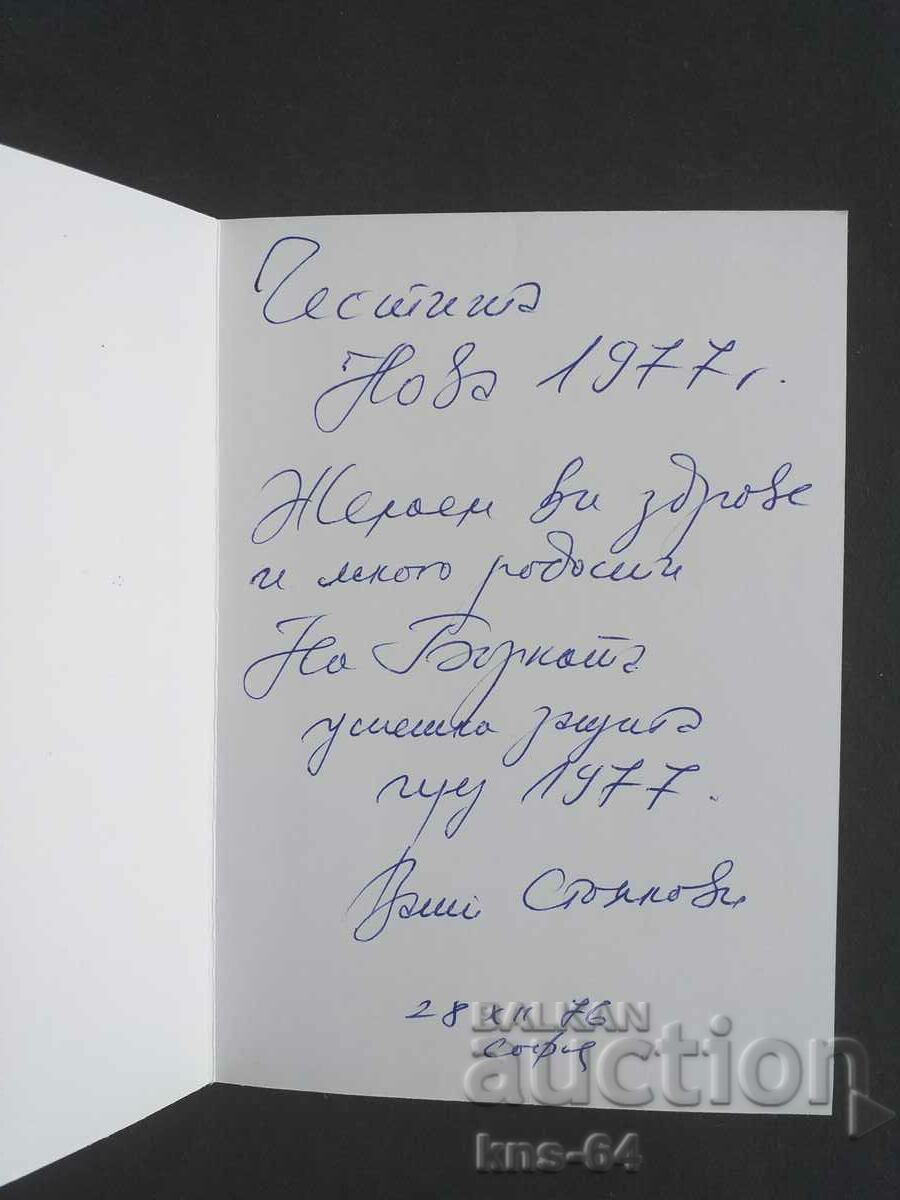 Честита
Нова 1977 г.
Желаем ви здраве
и много радости
На Борката
успешна защита
през 1977.
Ваши Стойкови
28 XII 76
София
BALKAN
auction
kns-64